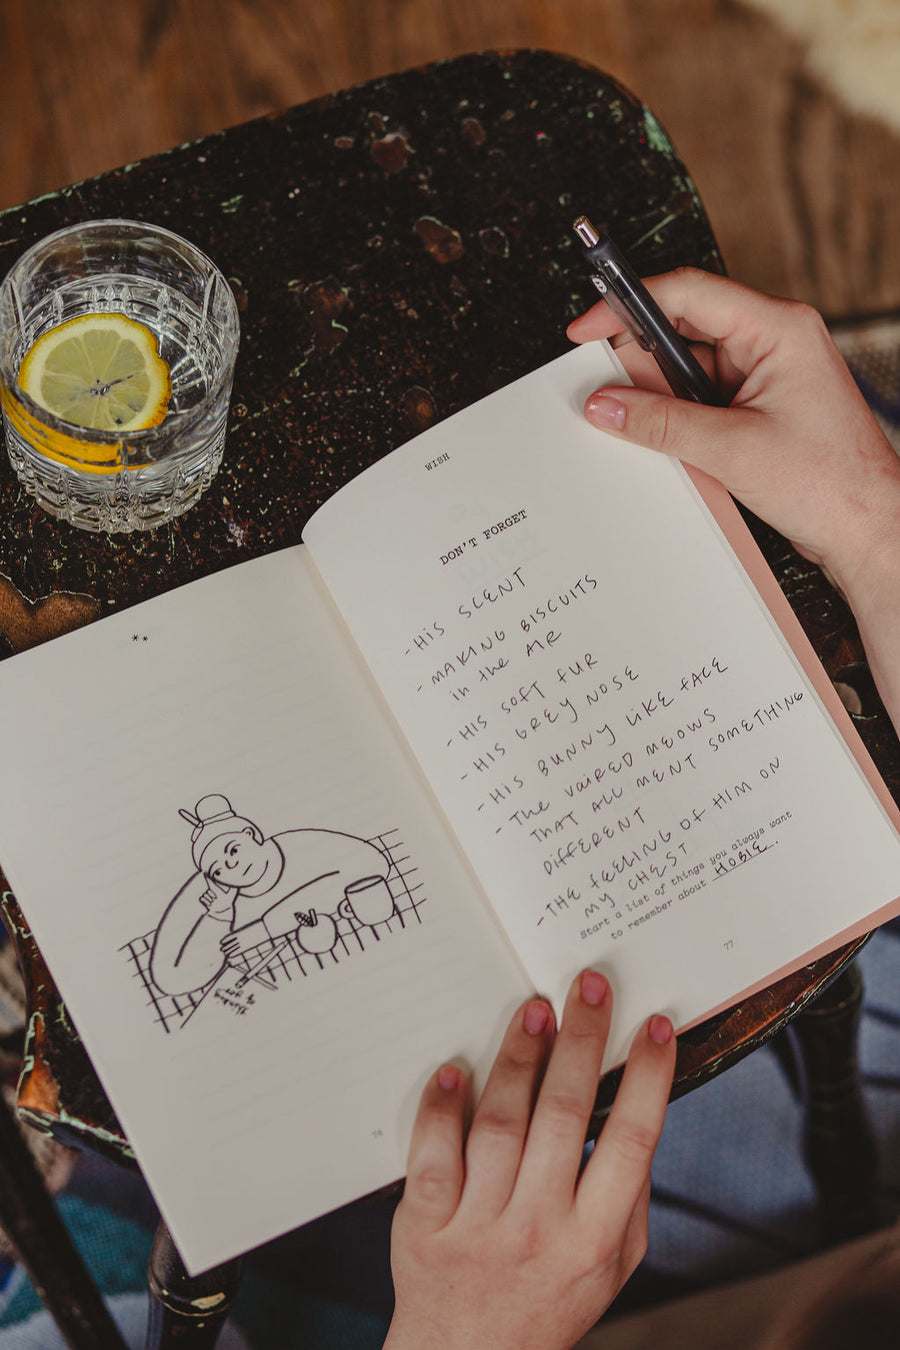 **
thinking
of you
76
WISH
DON'T FORGET
- HiS SCENT
- MAKING BISCUITS
in the AIR
- HIS SOFT FUR
- HIS GREY NOSE
- HIS BUNNY LIKE FACE
- The VAIRED MEOWS
THAT ALL MENT SOMETHING
DiFFERENT
- THE FEELING OF HIM ON
MY CHEST
Start a list of things you always want
to remember about HOBIE.
77